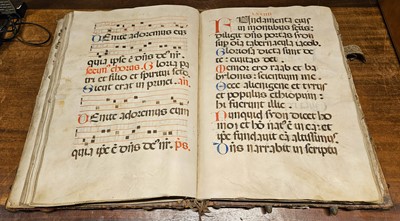 Uenite adoremus eum
quia ipse ē dn̄s deꝰ nr̄.
secūn choruꝫ. Gloria pa
tri et filio et spiritui sc̄to
Sicut erat in princi. añ.
Uenite adoremus eum
quia ipse ē dn̄s deꝰ nr̄. ps.
Fundamenta eius
in montibus sc̄tis:
diligit dn̄s portas syon
sup oīa tabernacula iacob.
Gloriosa dicta sunt de
te: ciuitas dei.
Memor ero raab et ba
bylonis: scientium me.
Ecce alienigene et tyrus
et populus ethiopum:
hi fuerunt illic.
Nunquid syon dicet ho
mo: et ho natꝰ ē in ea: et
ipse fundauit eā altissimꝰ.
Dn̄s narrabit in scriptu